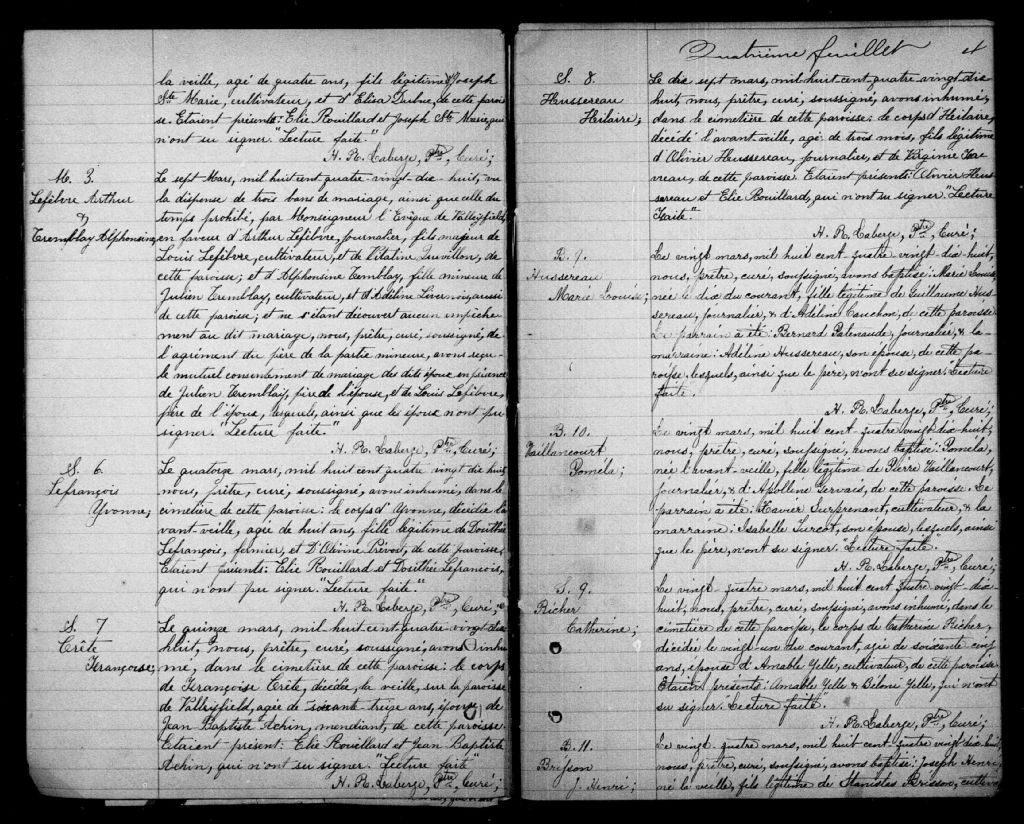 la veille, agé de quatre ans, fils légitime de Joseph
Ste Marie, cultivateur, et d'Elisa Dubuc, de cette parois-
se. Etaient présents: Elie Rouillard et Joseph Ste Marie, qui
n'ont su signer. "Lecture faite."
H. R. Laberge, Ptre, Curé;
M. 3.
Lefebvre Arthur
&
Tremblay Alphonsine,
Le sept Mars, mil huit cent quatre-vingt-dix-huit, vu
la dispense de trois bans de mariage, ainsi que celle du
temps prohibé, par Monseigneur l'Evêque de Valleyfield,
en faveur d'Arthur Lefebvre, journalier, fils majeur de
Louis Lefebvre, cultivateur, et de Vitaline Quvillon, de
cette paroisse; et d'Alphonsine Tremblay, fille mineure de
Julien Tremblay, cultivateur, et d'Adéline Livernois, aussi
de cette paroisse; et ne s'étant découvert aucun empêche-
ment au dit mariage, nous, prêtre, curé, soussigné, de
l'agrément du père de la partie mineure, avons reçu
le mutuel consentement de mariage des dits époux en présence
de Julien Tremblay, père de l'épouse, et de Louis Lefebvre,
père de l'époux, lesquels, ainsi que les époux n'ont pu
signer. "Lecture faite."
H. R. Laberge, Ptre, Curé;
S. 6
Lefrançois
Yvonne;
Le quatorze mars, mil huit cent quatre vingt dix huit
nous, prêtre, curé, soussigné, avons inhumé, dans le
cimetière de cette paroisse: le corps d'Yvonne, décédée l'a-
vant-veille, agée de huit ans, fille légitime de Douithée
Lefrançois, fermier, et D'Olivine Prévost, de cette paroisse.
Etaient présents: Elie Rouillard et Douithée Lefrançois,
qui n'ont pu signer. "Lecture faite."
H. R. Laberge, Ptre, Curé;
S. 7
Crête
Françoise;
Le quinze mars, mil huit cent quatre-vingt-dix
huit, nous, prêtre, curé, soussigné, avons inhu-
mé, dans le cimetière de cette paroisse: le corps
de Françoise Crête, décédée, la veille, sur la paroisse
de Valleyfield, agée de soixante treize ans, épouse de
Jean Baptiste Achin, mendiant, de cette paroisse.
Etaient présent: Elie Rouillard et Jean Baptiste
Achin, qui n'ont su signer. "Lecture faite"
H. R. Laberge, Ptre, Curé;
Quatrième feuillet
S. 8.
Hussereau
Hilaire;
Le dix sept mars, mil huit cent quatre-vingt-dix
huit, nous, prêtre, curé, soussigné, avons inhumé,
dans le cimetière de cette paroisse: le corps d'Hilaire,
décédé l'avant-veille, agé de trois mois, fils légitime
d'Olivier Hussereau, journalier, et de Virginie
reau, de cette paroisse. Etaient présents: Olivier Hus-
sereau et Elie Rouillard, qui n'ont su signer. "Lecture
faite."
H. R. Laberge, Ptre, Curé;
B. 9.
Hussereau
Marie Louise;
Le vingt mars, mil huit cent quatre vingt dix huit,
nous, prêtre, curé, soussigné, avons baptisé: Marie Louise
née le dix du courant, fille légitime de Guillaume Hus-
sereau, journalier, & d'Adéline Cauchon, de cette paroisse.
Le parrain a été: Bernard Patenaude, journalier, & la
marraine: Adéline Hussereau, son épouse, de cette pa-
roisse, lesquels, ainsi que le père, n'ont su signer. "Lecture
faite.
H. R. Laberge, Ptre, Curé;
B. 10.
Vaillancourt
Poméla;
Le vingt mars, mil huit cent quatre vingt dix huit,
nous, prêtre, curé, soussigné, avons baptisé: Poméla,
née l'avant-veille, fille légitime de Pierre Vaillancourt,
journalier, & d'Apolline Gervais, de cette paroisse. Le
parrain a été: Xavier Surprenant, cultivateur, & la
marraine: Isabelle Turcot, son épouse, lesquels, ainsi
que le père, n'ont su signer. "Lecture faite."
H. R. Laberge, Ptre, Curé;
S. 9.
Richer
Catherine;
Le vingt-quatre mars, mil huit cent quatre vingt-dix
huit, nous, prêtre, curé, soussigné, avons inhumé, dans le
cimetière de cette paroisse, le corps de Catherine Richer,
décédée le vingt-un du courant, agée de soixante cinq
ans, épouse d'Amable Yelle, cultivateur, de cette paroisse.
Etaient présents: Amable Yelle & Béloni Yelle, qui n'ont
su signer. "Lecture faite."
H. R. Laberge, Ptre, Curé;
B. 11.
Brisson
J. Henri;
Le vingt-quatre mars, mil huit cent quatre vingt dix huit,
nous, prêtre, curé, soussigné, avons baptisé: Joseph Henri,
né la veille, fils légitime de Stanislas Brisson, cultiva